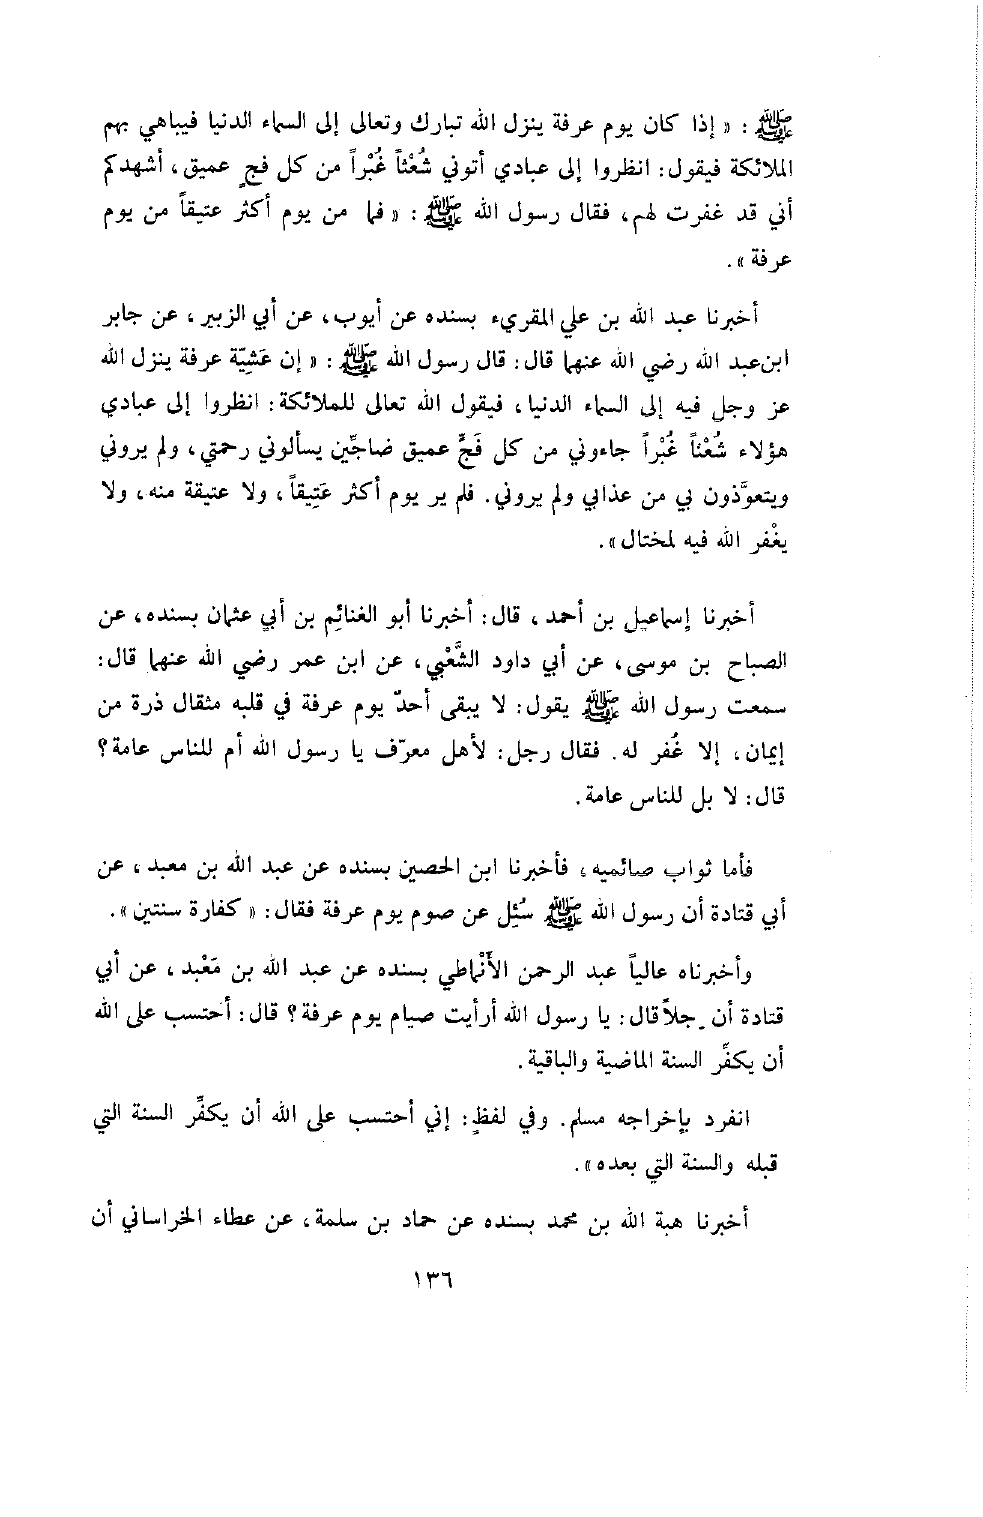 ﷺ : « إذا كان يوم عرفة ينزل الله تبارك وتعالى إلى السماء الدنيا فيباهي بهم
الملائكة فيقول : انظروا إلى عبادي أتوني شُعْثاً غُبْراً من كل فجٍ عميق ، أشهدكم
أني قد غفرت لهم ، فقال رسول الله ﷺ : « فما من يوم أكثر عتيقاً من يوم
عرفة » .
أخبرنا عبد الله بن علي المقريء بسنده عن أيوب ، عن أبي الزبير ، عن جابر
ابن عبد الله رضي الله عنهما قال : قال رسول الله ﷺ : « إن عَشِيّة عرفة ينزل الله
عز وجل فيه إلى السماء الدنيا ، فيقول الله تعالى للملائكة : انظروا إلى عبادي
هؤلاء شُعْثاً غُبْراً جاءوني من كل فَجٍّ عميق ضاجِّين يسألوني رحمتي ، ولم يروني
ويتعوَّذون بي من عذابي ولم يروني . فلم ير يوم أكثر عَتِيقاً ، ولا عتيقة منه ، ولا
يغْفر الله فيه لمختال » .
أخبرنا إسماعيل بن أحمد ، قال : أخبرنا أبو الغنائِم بن أبي عثمان بسنده ، عن
الصباح بن موسى ، عن أبي داود الشَّعْبي ، عن ابن عمر رضي الله عنهما قال :
سمعت رسول الله ﷺ يقول : لا يبقى أحدّ يوم عرفة في قلبه مثقال ذرة من
إيمان ، إلا غُفر له . فقال رجل : لأهل معرّف يا رسول الله أم للناس عامة ؟
قال : لا بل للناس عامة .
فأما ثواب صائميه ، فأخبرنا ابن الحصين بسنده عن عبد الله بن معبد ، عن
أبي قتادة أن رسول الله ﷺ سُئِل عن صوم يوم عرفة فقال : « كفارة سنتين » .
وأخبرناه عالياً عبد الرحمن الأَنْماطي بسنده عن عبد الله بن مَعْبد ، عن أبي
قتادة أن رجلاً قال : يا رسول الله أرأيت صيام يوم عرفة ؟ قال : أحتسب على الله
أن يكفِّر السنة الماضية والباقية .
انفرد بإخراجه مسلم . وفي لفظٍ : إني أحتسب على الله أن يكفِّر السنة التي
قبله والسنة التي بعده » .
أخبرنا هبة الله بن محمد بسنده عن حماد بن سلمة ، عن عطاء الخراساني أن
١٣٦